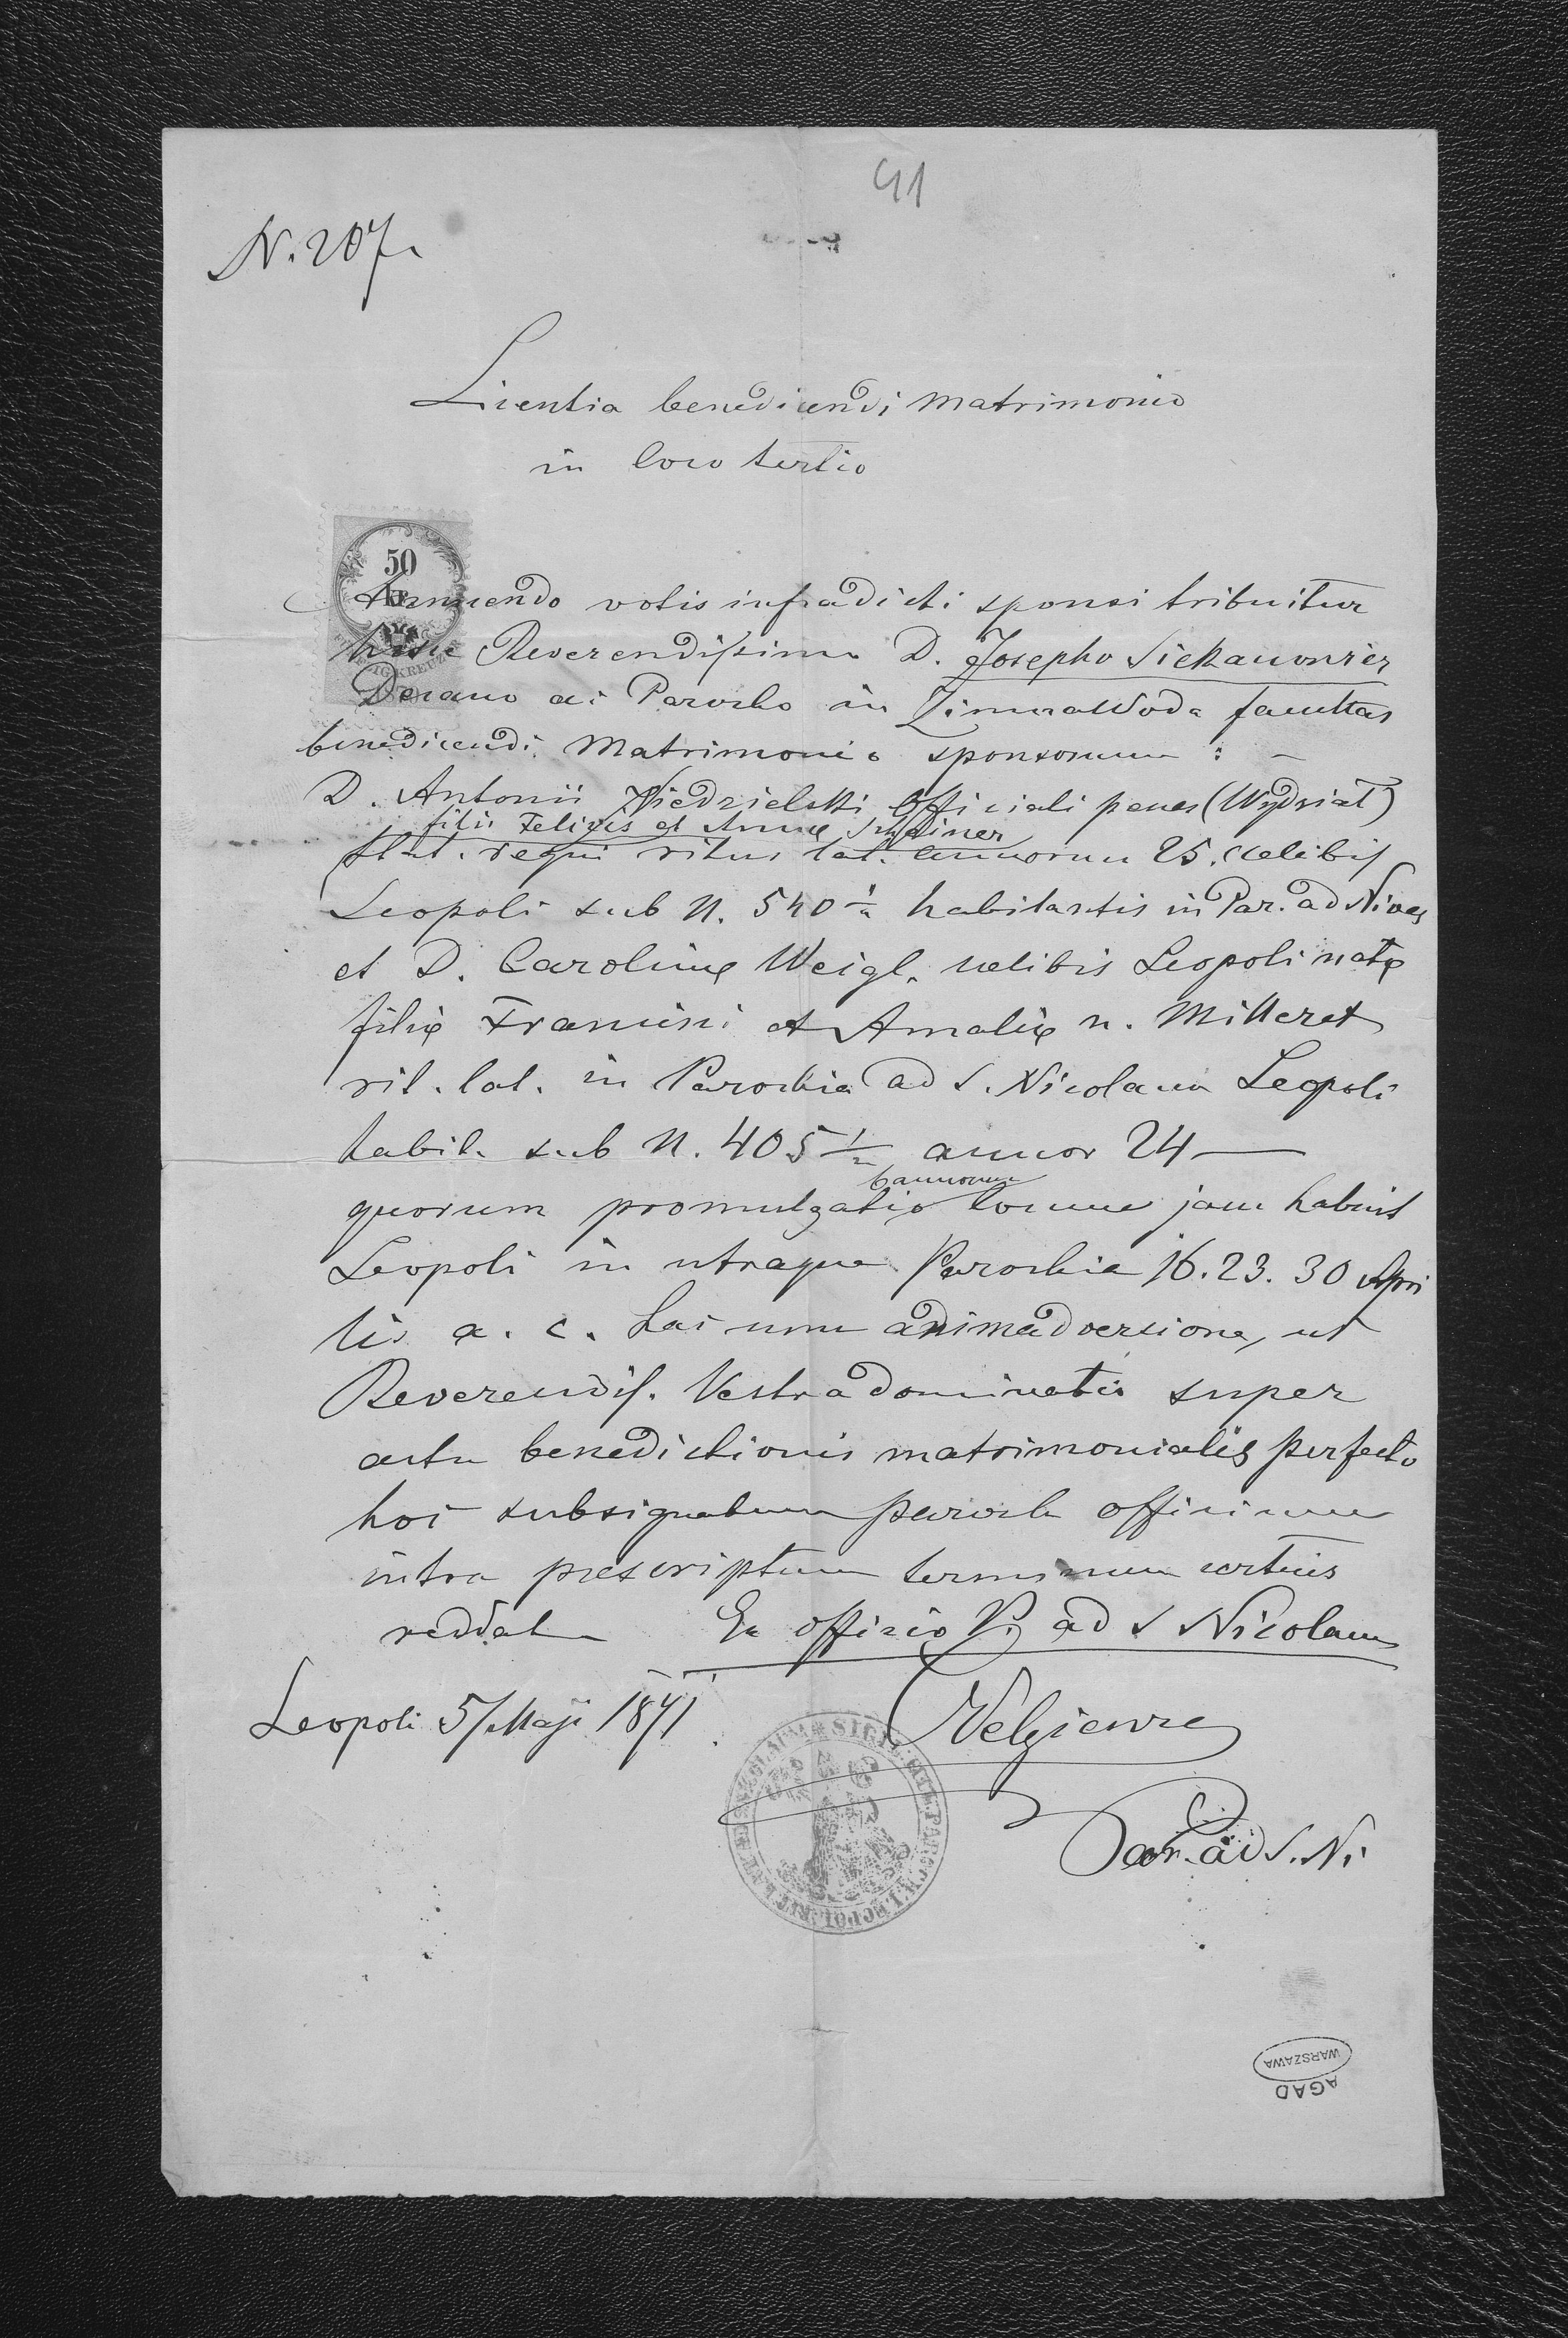 41
N. 207.
Licentia benedicendi Matrimonio
in loco tertio
50
Annuendo votis infradicti sponsi tribuitur
hisce Reverendissimo D. Josepho
Decano ac Parocho in Zimnawoda facultas
benedicendi Matrimonio sponsorum : –
D. Antonii Niedzielski Officiali penes (Wydział)
filii Felicis et Annæ
Stat. regni ritus lat. annorum 25. cælibis
Leopoli sub N. 540 habitantis in Par. ad Nives
et D. Carolinæ Weigl. cælibis Leopoli natæ
filiæ Francisci et Amaliæ n. Milleret
rit. lat. in Parochia ad S. Nicolaum Leopoli
habit. sub N. 405 annor 24 —
bannorum
quorum promulgatio locum jam habuit
Leopoli in utraque Parochia 16. 23. 30 Apri
lis a. c. hac cum animadversione, ut
Reverendis. Vestra dominatio super
actu benedictionis matrimonialis perfecto
hoc subsignatum paroch officium
intra præscriptum terminum certius
reddat Ex officio P. ad S Nicolaum
Leopoli 5/Maji 1871.
Par. ad S. Ni
SIGIL. PAROCH. LEOPOL. RIT. LAT. AD S. NICOLAUM
AGAD
WARSZAWA